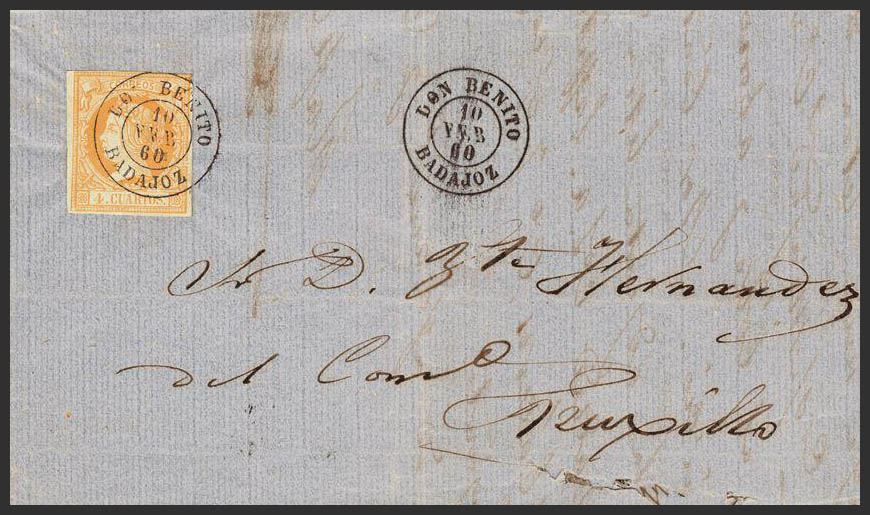 CORREOS
LON BENITO
10
FEB
60
BADAJOZ
4 CUARTOS.
LON BENITO
10
FEB
60
BADAJOZ
Sr D. Hernandez
del Comº
Truxillo